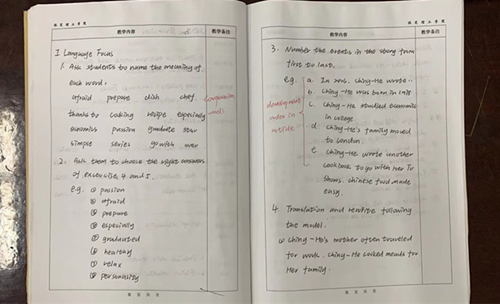 教学内容
教学备注
I Language Focus
1. Ask students to name the meaning of
each word.
afraid prepare dish chef
thanks to cooking recipe especially
economics passion graduate star
simple series go with over
2. Ask them to choose the right answers
of excercise 4 and 5.
e.g. ① passion
② afraid
③ prepare
④ especially
⑤ graduated
⑥ healthy
⑦ relax
⑧ personality
教学内容
教学备注
3. Number the events in the story from
first to last.
e.g. a. In 2005. Ching-He wrote..
b Ching-He was born in 1978
c. Ching-He studied economics
in college
d Ching-He's family moved
to London.
e. Ching-He wrote another
cookbook to go with her TV
Shows. Chinese food made
easy.
4 Translation and rewrite following
the model.
① Ching-He's mother often traveled
for work. Ching-He cooked meals for
Her family.